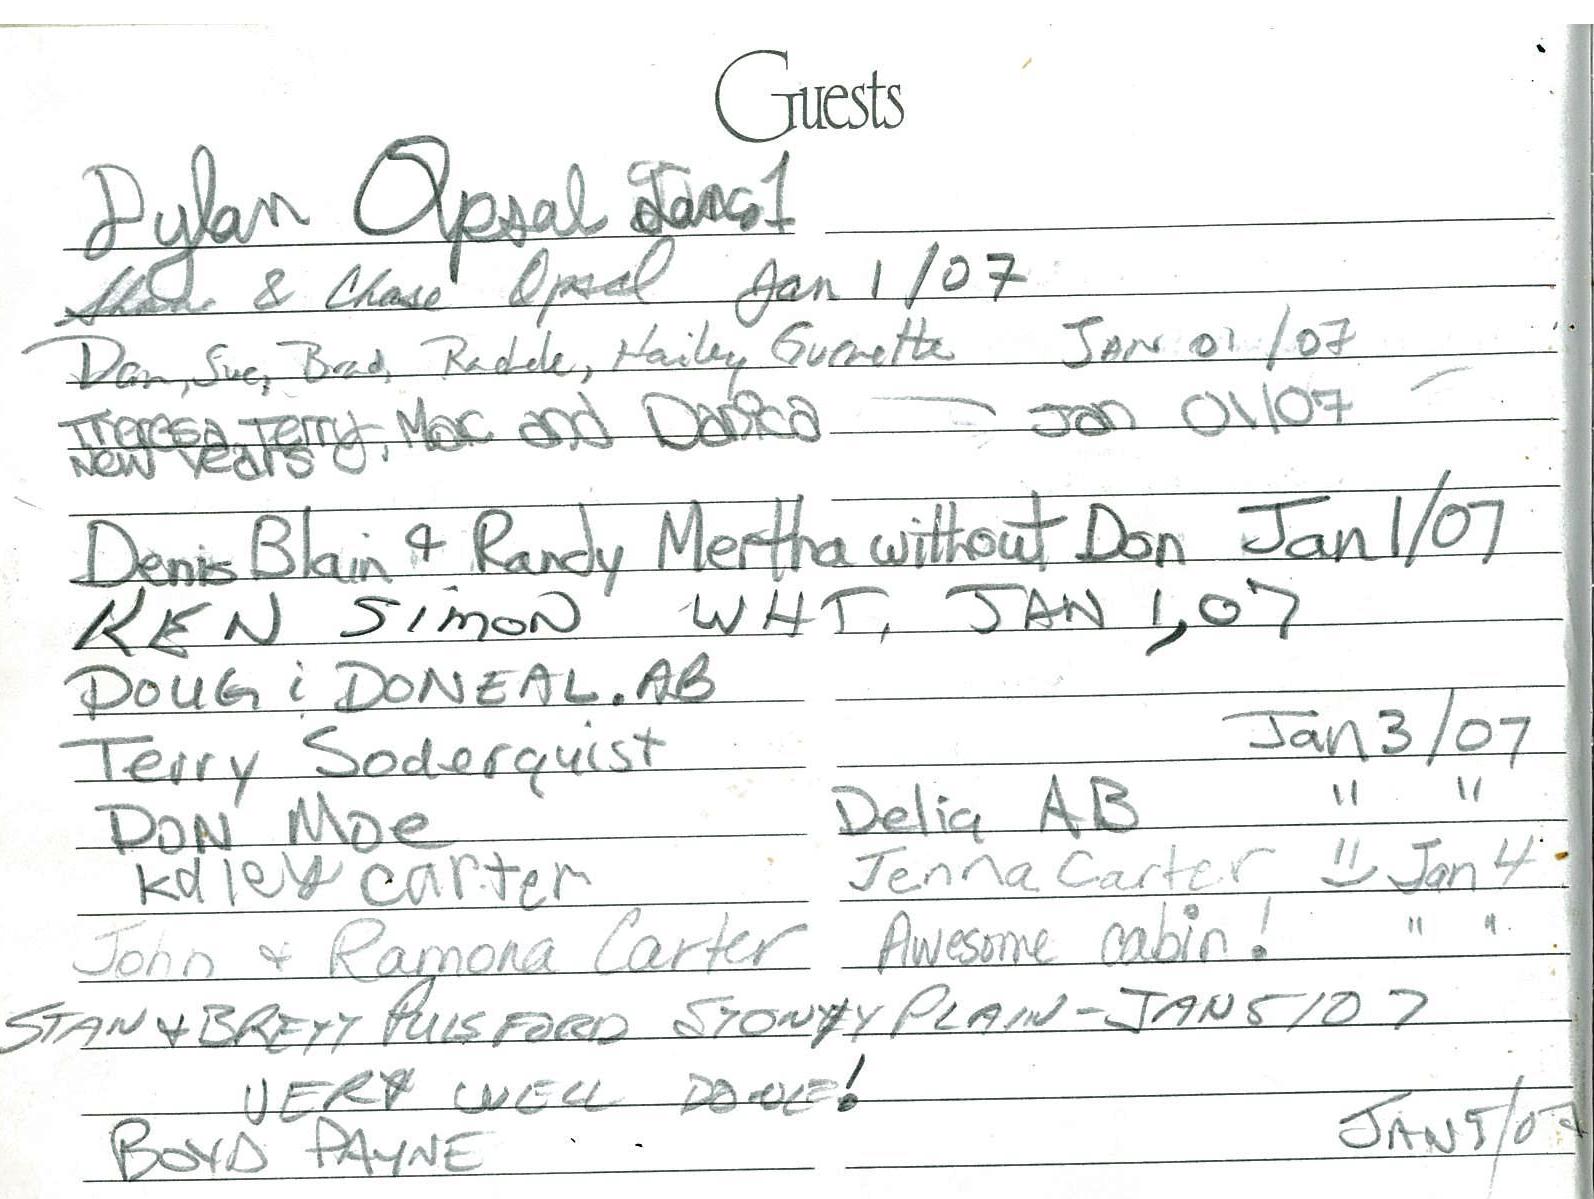 Guests
Dylan Opsal Jan 1
Shane & Chase Opsal Jan 1/07
Dan, Sue, Brad, Hailey Jan 01/07
Theresa, Terry, Mac and Danica — Jan 01/07
New Years
Denis Blain & Randy Mertha without Don Jan 1/07
KEN SimoN WHT, JAN 1,07
DOUG i DONEAL. AB
Terry Soderquist Jan 3/07
DON MOe Delia AB " "
Kdley carter Jenna Carter Jan 4
John & Ramona Carter Awesome cabin! " "
STAN & BRETT PULSFORD STONY PLAIN - JAN 5/07
VERY WELL DONE!
BOYD PAYNE JAN 5/07